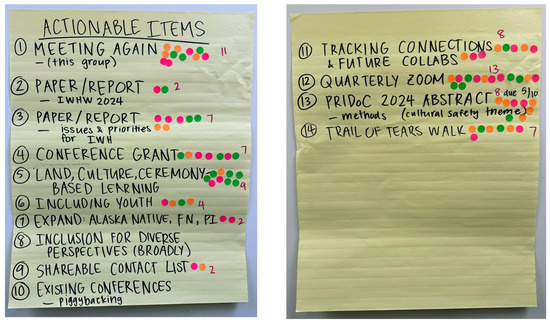 ACTIONABLE ITEMS
① MEETING AGAIN 11
– (this group)
② PAPER/REPORT 2
– IWHW 2024
③ PAPER/REPORT 7
– issues & priorities
for IWH
④ CONFERENCE GRANT 7
⑤ LAND, CULTURE, CEREMONY-
BASED LEARNING 9
⑥ INCLUDING YOUTH 4
⑦ EXPAND: ALASKA NATIVE, FN, PI 2
⑧ INCLUSION FOR DIVERSE
PERSPECTIVES (BROADLY)
⑨ SHAREABLE CONTACT LIST 2
⑩ EXISTING CONFERENCES
– piggybacking
8
⑪ TRACKING CONNECTIONS
& FUTURE COLLABS
13
⑫ QUARTERLY ZOOM
⑬ PRIDoC 2024 ABSTRACT 8 due 5/10
– methods (cultural safety theme)
⑭ TRAIL OF TEARS WALK 7